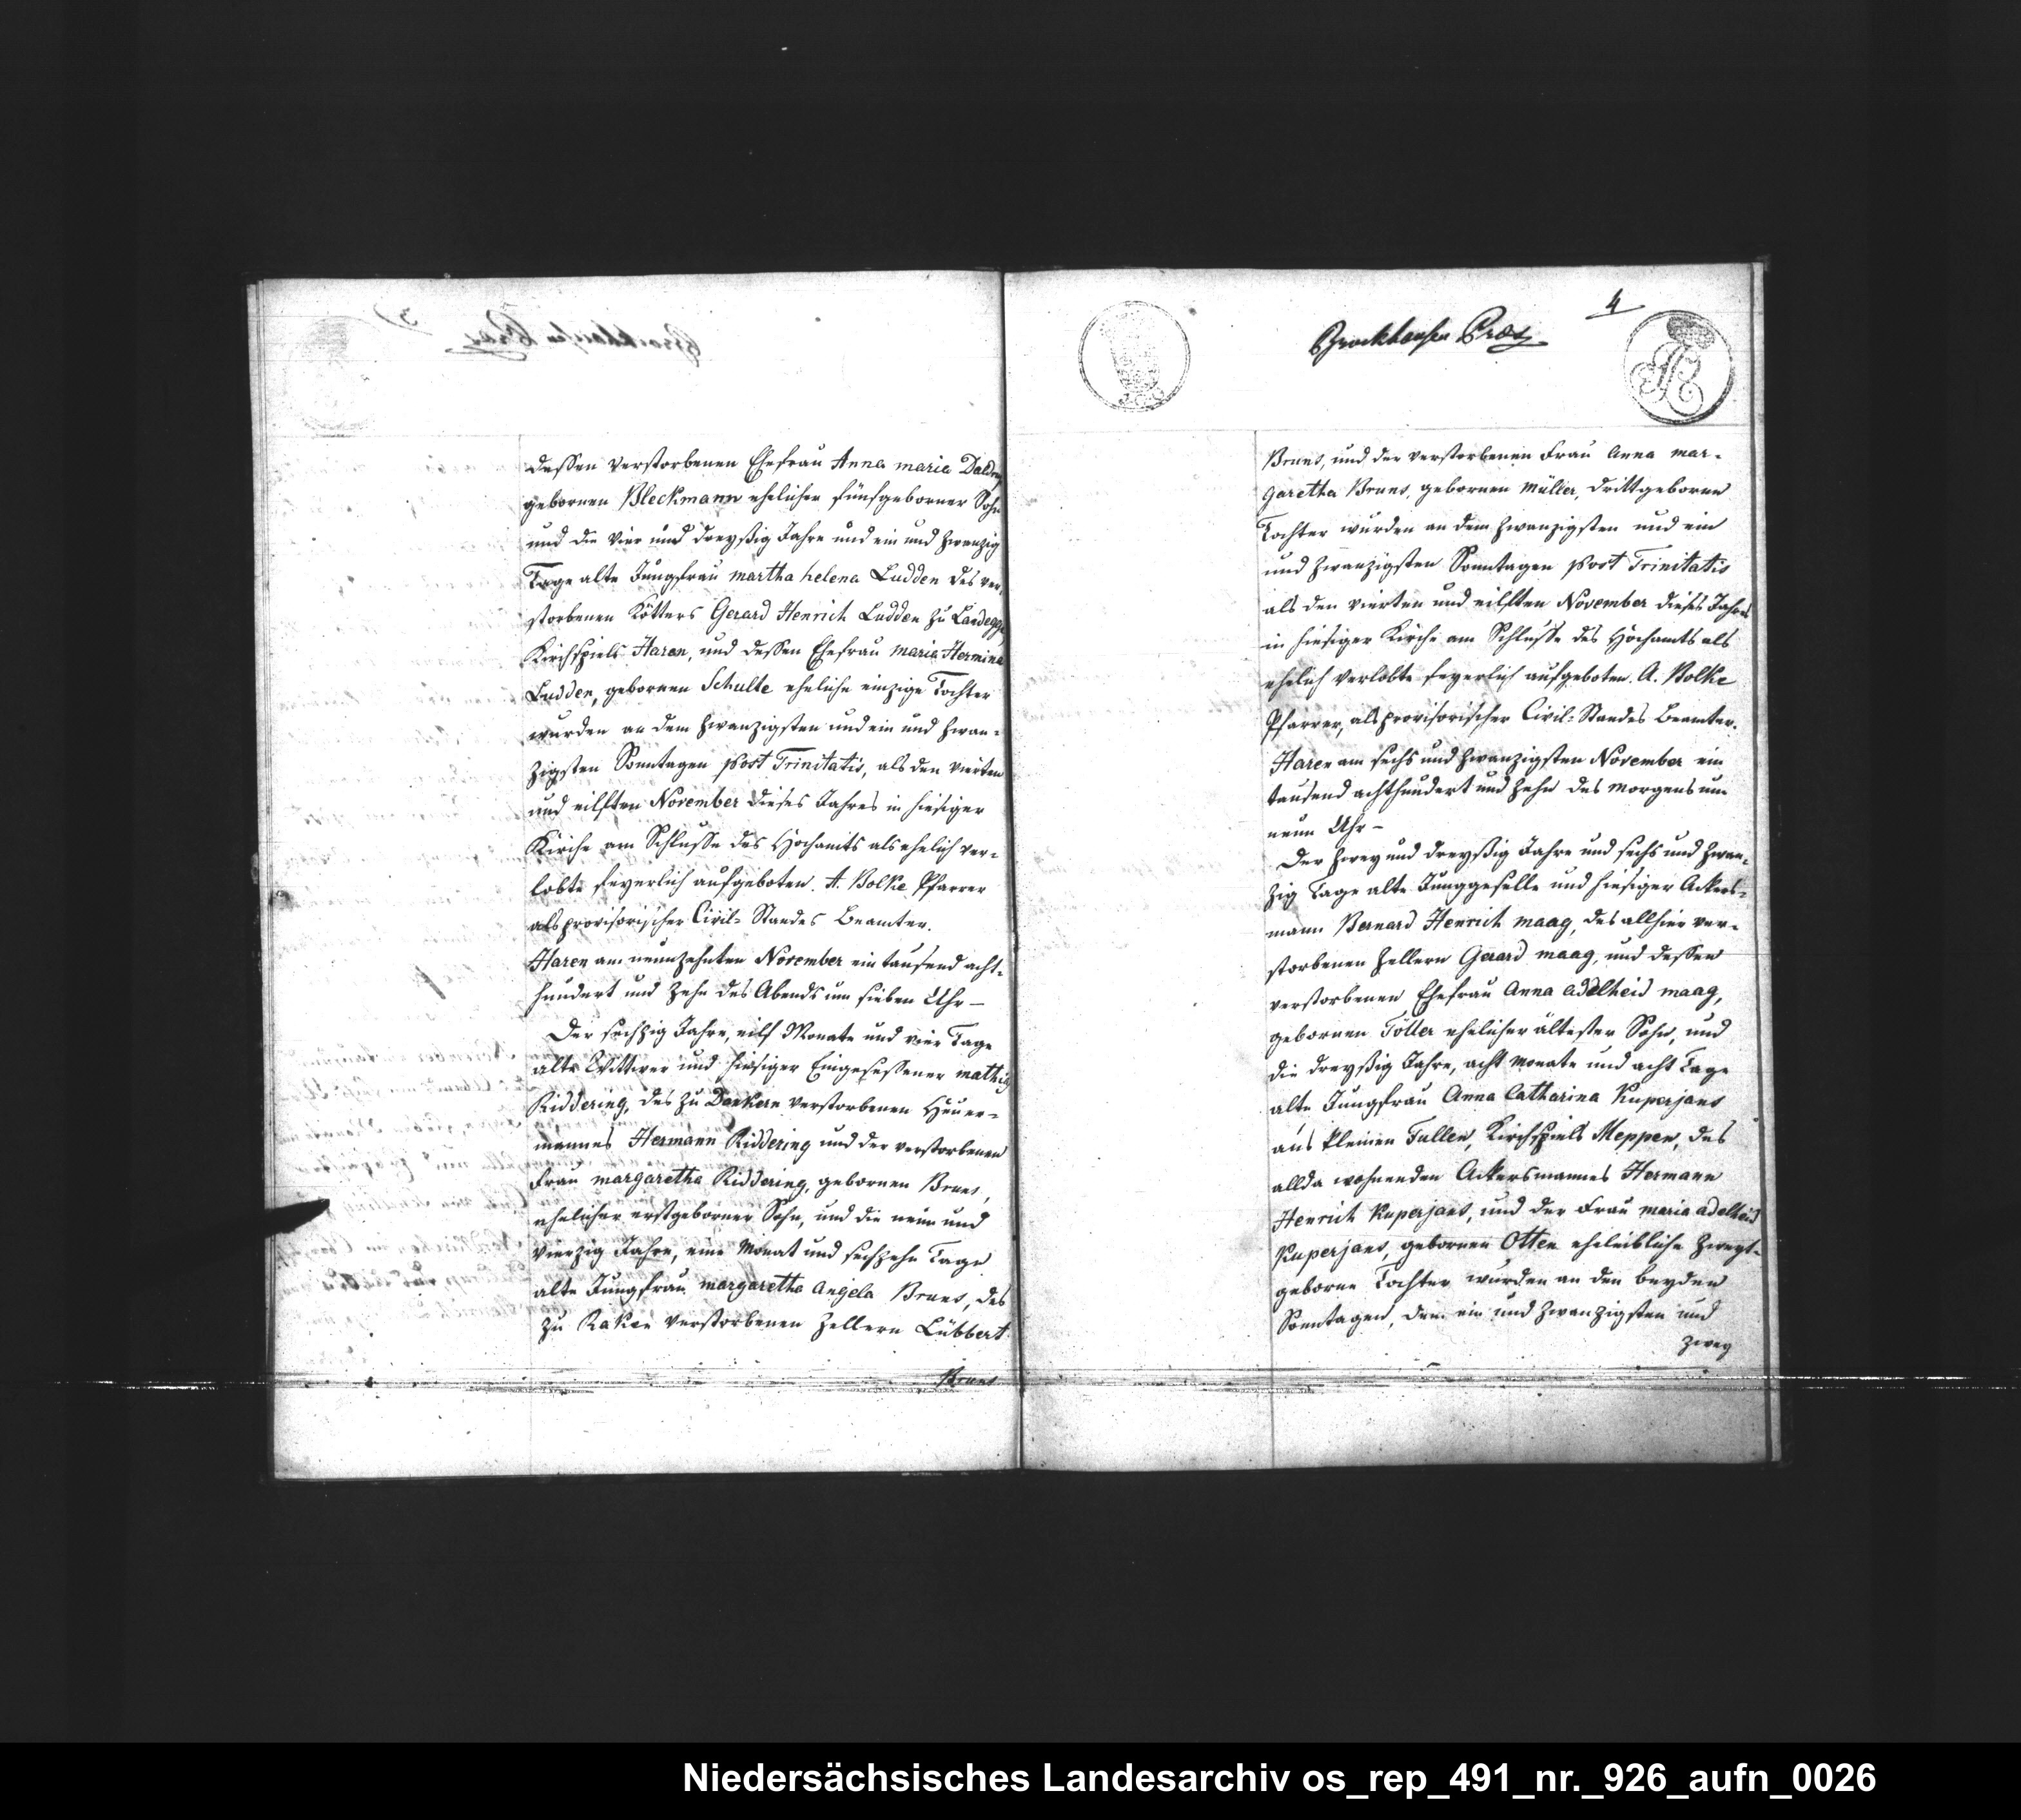 dessen verstorbenen Ehefrau Anna maria
gebornen Bleckmann ehelicher fünfgeborner Sohn
und die vier und dreyßig Jahre und ein und zwanzig
Tage alte Jungfrau martha helena Ludden des ver-
storbenen Kötters Gerard Henrich Ludden zu Landegge
Kirchspiels Haren, und dessen Ehefrau maria Hermina
Ludden, gebornen Schulte eheliche einzige Tochter
wurden an dem zwanzigsten und ein und zwan-
zigsten Sonntagen post Trinitatis, als den vierten
und eilften November dieses Jahres in hiesiger
Kirche am Schlusse des Hochamts als ehelich ver-
lobte feyerlich aufgeboten. A. Bolke Pfarrer
als provisorischer Civil-Standes Beamter.
Haren am neunzehnten November ein tausend acht-
hundert und zehn des Abends um sieben Uhr –
Der sechzig Jahre, eilf Monate und vier Tage
alte Wittwer und hiesiger Eingesessener mathias
Riddering, des zu Dankern verstorbenen Heuer-
mannes Hermann Riddering und der verstorbenen
Frau margaretha Riddering, gebornen Bruns,
ehelicher erstgeborner Sohn, und die neun und
vierzig Jahre, eine Monat und sechzehn Tage
alte Jungfrau margaretha Angela Bruns, des
zu Raken verstorbenen Zellern Lübbert
Bruns
4
Brockhausen Præs
Bruns, und der verstorbenen Frau Anna mar-
garetha Bruns, gebornen müller, drittgeborne
Tochter wurden an dem zwanzigsten und ein
und zwanzigsten Sonntagen post Trinitatis
als den vierten und eilften November dieses Jahres
in hiesiger Kirche am Schlusse des Hochamts als
ehelich verlobte feyerlich aufgeboten. A. Bolke
Pfarrer, als provisorischer Civil-Standes Beamter.
Haren am sechs und zwanzigsten November ein
tausend achthundert und zehn des morgens um
neun Uhr –
Der zwey und dreyßig Jahre und sechs und zwan-
zig Tage alte Junggeselle und hiesiger Ackers-
mann Bernard Henrich maag, des allhier ver-
storbenen Zellern Gerard maag, und dessen
verstorbenen Ehefrau Anna adelheid maag,
gebornen Töller ehelicher ältester Sohn, und
die dreyßig Jahre, acht monate und acht Tage
alte Jungfrau Anna Catharina Kuperjans
aus kleinen Fullen, Kirchspiels Meppen, des
allda wohnenden Ackersmannes Hermann
Henrich Kuperjans, und der Frau maria adelheid
Kuperjans, gebornen Otten eheleibliche zweyt-
geborne Tochter wurden an den beyden
Sonntagen, dem ein und zwanzigsten und
zwey
Niedersächsisches Landesarchiv os_rep_491_nr._926_aufn_0026